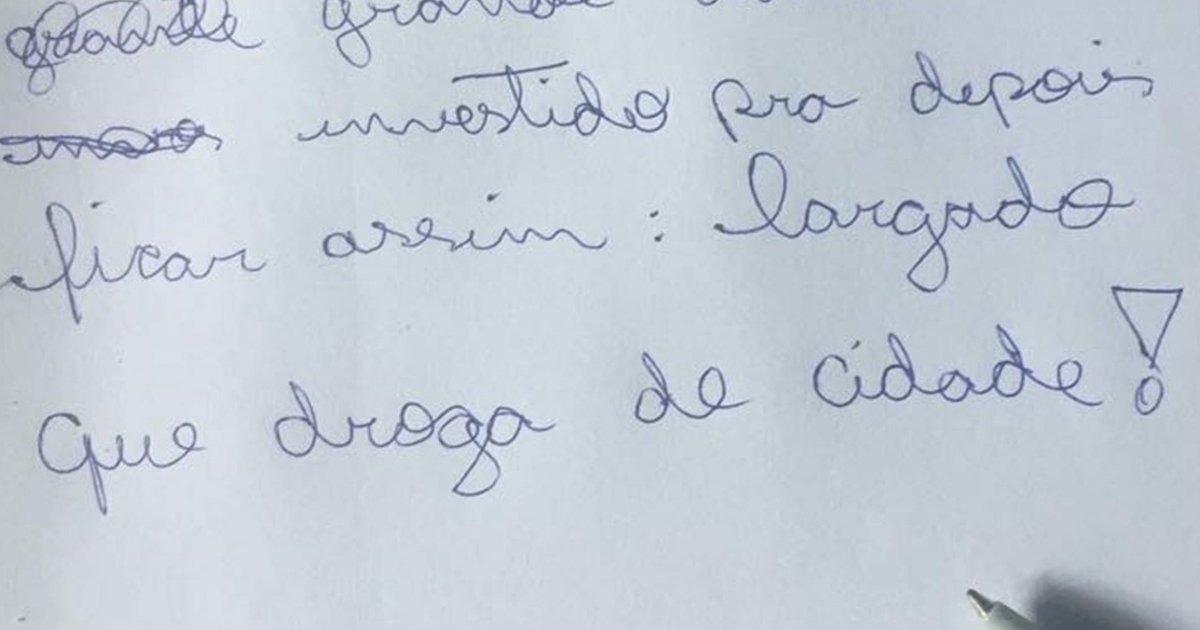 grande
investido pra depois
ficar assim: largado
Que droga de cidade!